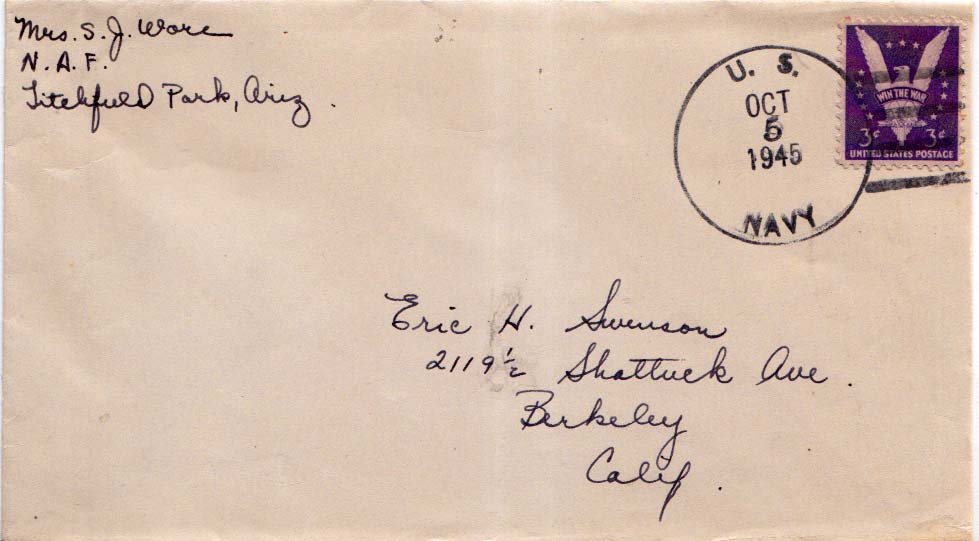 Mrs. S. J. Wore
N. A. F.
Litchfield Park, Ariz.
U. S.
OCT
5
1945
NAVY
WIN THE WAR
3¢ 3¢
UNITED STATES POSTAGE
Eric H. Swenson
2119 ½ Shattuck Ave.
Berkeley
Calif.